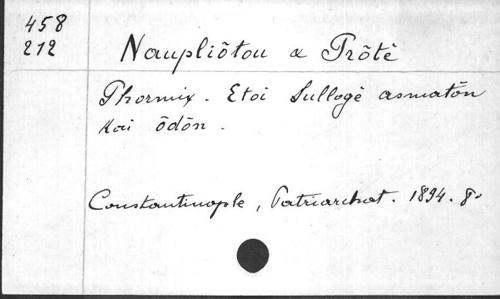 458
212
Naupliôtou & Prôtè
Phormix. Etoi Sullogè asmatôn
kai ôdôn.
Constantinople, Patriarchat. 1894. 8º